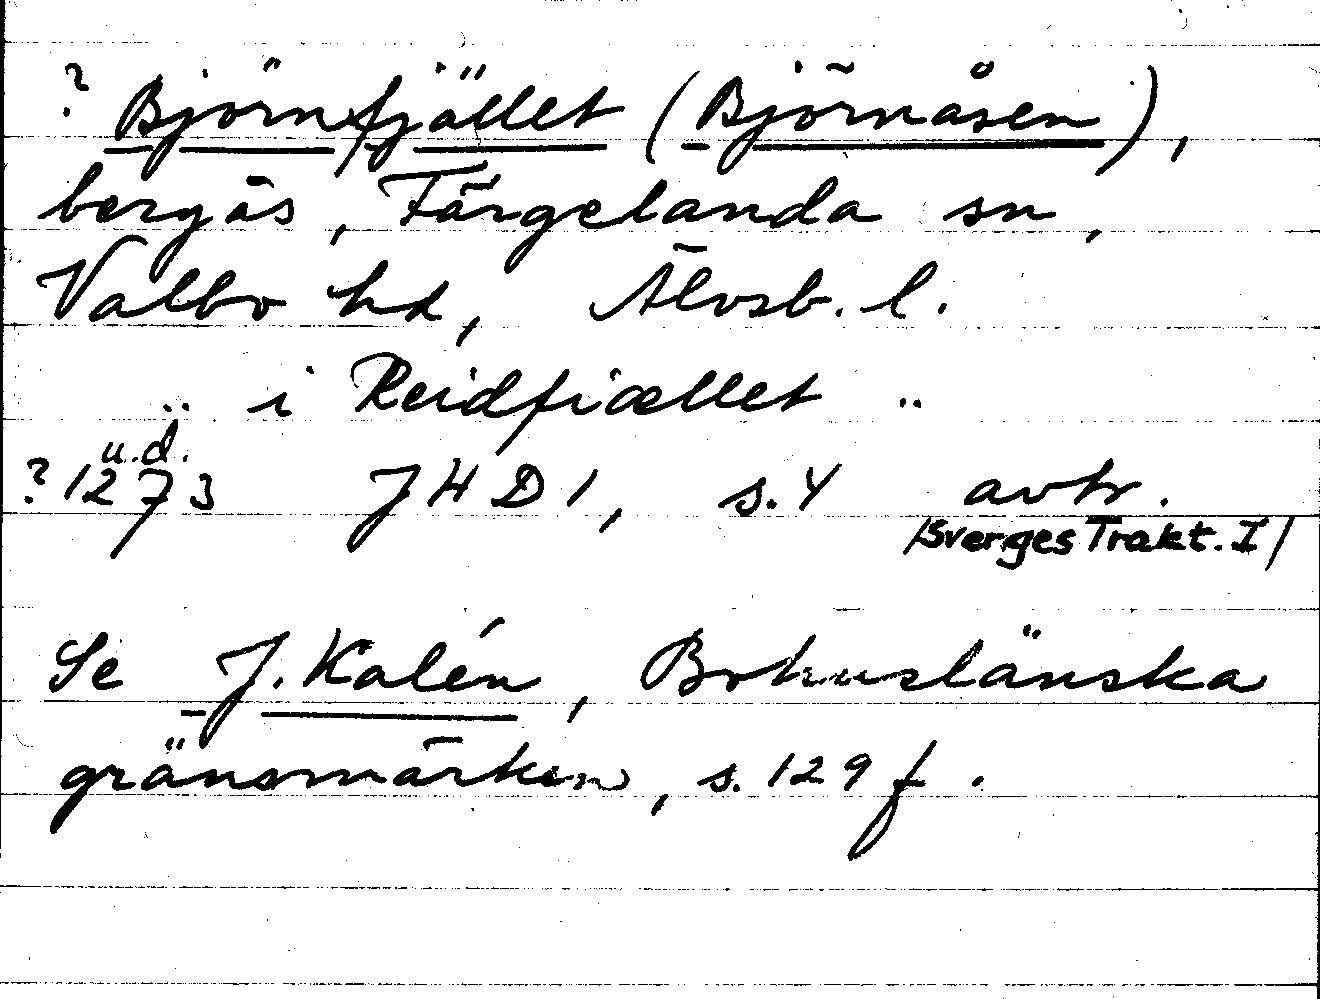 ? Björnfjället (Björnåsen),
bergås, Färgelanda sn,
Valbo hd, Älvsb. l.
.. i Reidfiællet ..
u.d.
? 1273 JHD 1, s. 4 avtr.
/Sverges Trakt. I/
Se J. Kalén, Bohuslänska
gränsmärken, s. 129 f.